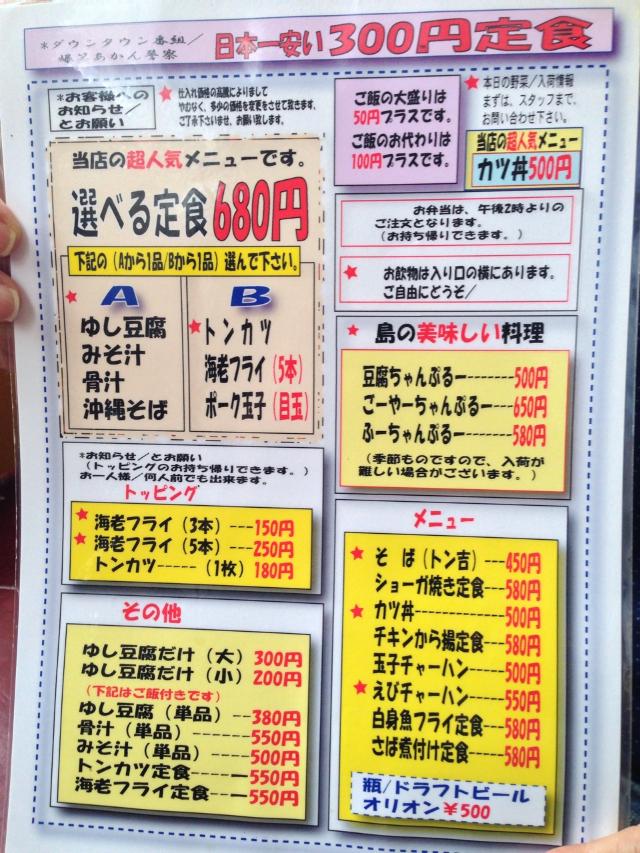 *ダウンタウン番組/
爆笑あかん警察
日本一安い300円定食
*お客様への
お知らせ/
とお願い
★ 仕入れ価格の高騰によりまして
やむなく、多少の価格を変更をさせて致きます、
ご了承下さいませ、お願い致します。
当店の超人気メニューです。
選べる定食680円
下記の(Aから1品/Bから1品)選んで下さい。
★ A
ゆし豆腐
みそ汁
骨汁
沖縄そば
B
★トンカツ
海老フライ(5本)
ポーク玉子(目玉)
*お知らせ/とお願い
(トッピングのお持ち帰りできます。)
お一人様/何人前でも出来ます。
トッピング
★海老フライ(3本)---150円
★海老フライ(5本)---250円
トンカツ-----(1枚)180円
その他
ゆし豆腐だけ(大)300円
ゆし豆腐だけ(小)200円
(下記はご飯付きです)
ゆし豆腐(単品)--380円
骨汁(単品)-----550円
みそ汁(単品)----500円
トンカツ定食-----550円
海老フライ定食---550円
ご飯の大盛りは
50円プラスです。
ご飯のお代わりは
100円プラスです。
★本日の野菜/入荷情報
まずは、スタッフまで、
お問い合わせ下さい。
当店の超人気メニュー
カツ丼500円
お弁当は、午後2時よりの
ご注文となります。
(お持ち帰りできます。)
★ お飲物は入り口の横にあります。
ご自由にどうぞ/
★ 島の美味しい料理
豆腐ちゃんぷるー-------500円
ごーやーちゃんぷるー----650円
ふーちゃんぷるー-------580円
(季節ものですので、入荷が
難しい場合がございます。)
メニュー
★そ ば(トン吉)----450円
ショーガ焼き定食----580円
★カツ丼-----------500円
チキンから揚定食----580円
玉子チャーハン------500円
★えびチャーハン-----550円
白身魚フライ定食----580円
さば煮付け定食-----580円
瓶/ドラフトビール
オリオン¥500